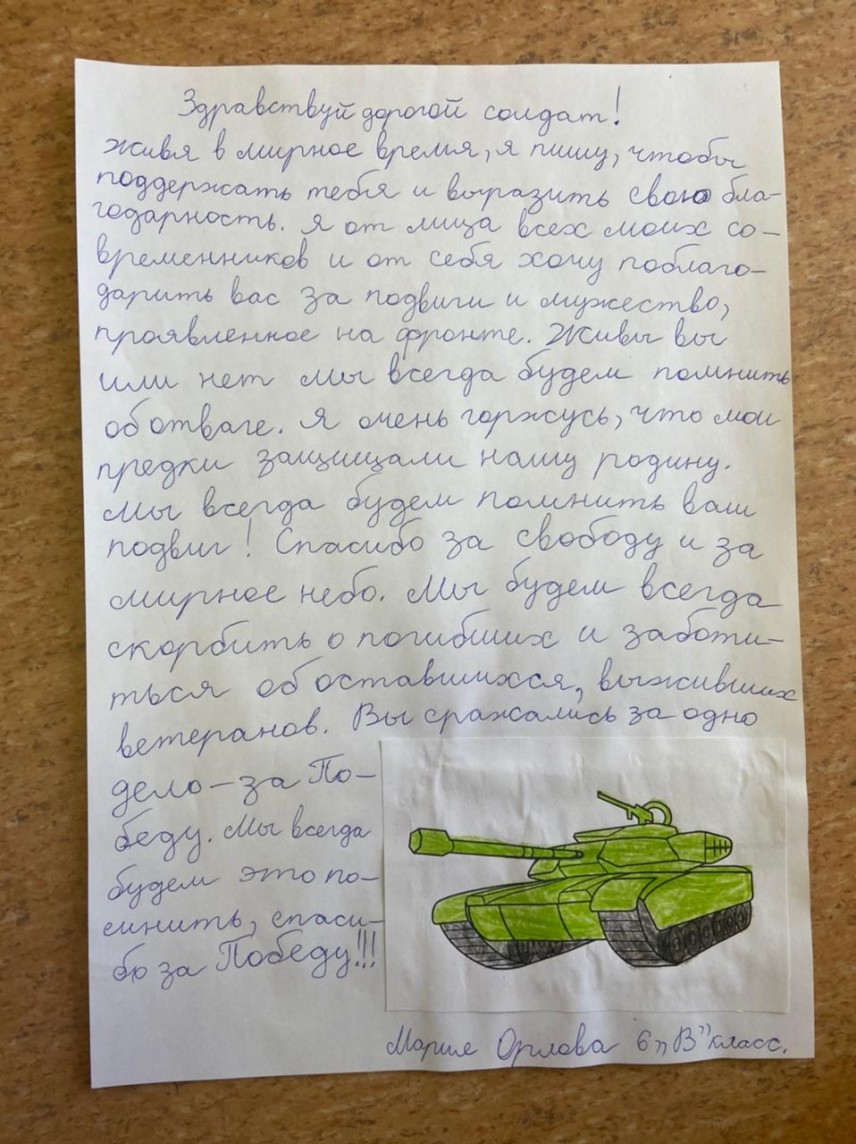 Здравствуй дорогой солдат!
Живя в мирное время, я пишу, чтобы
поддержать тебя и выразить свою бла-
годарность. Я от лица всех моих со-
временников и от себя хочу поблаго-
дарить вас за подвиги и мужество,
проявленное на фронте. Живы вы
или нет мы всегда будем помнить
об отваге. Я очень горжусь, что мои
предки защищали нашу родину.
Мы всегда будем помнить ваш
подвиг! Спасибо за свободу и за
мирное небо. Мы будем всегда
скорбить о погибших и заботи-
ться об оставшихся, выживших
ветеранов. Вы сражались за одно
дело - за По-
беду. Мы всегда
будем это по-
мнить, спаси-
бо за Победу!!!
Мария Орлова 6 „В" класс.